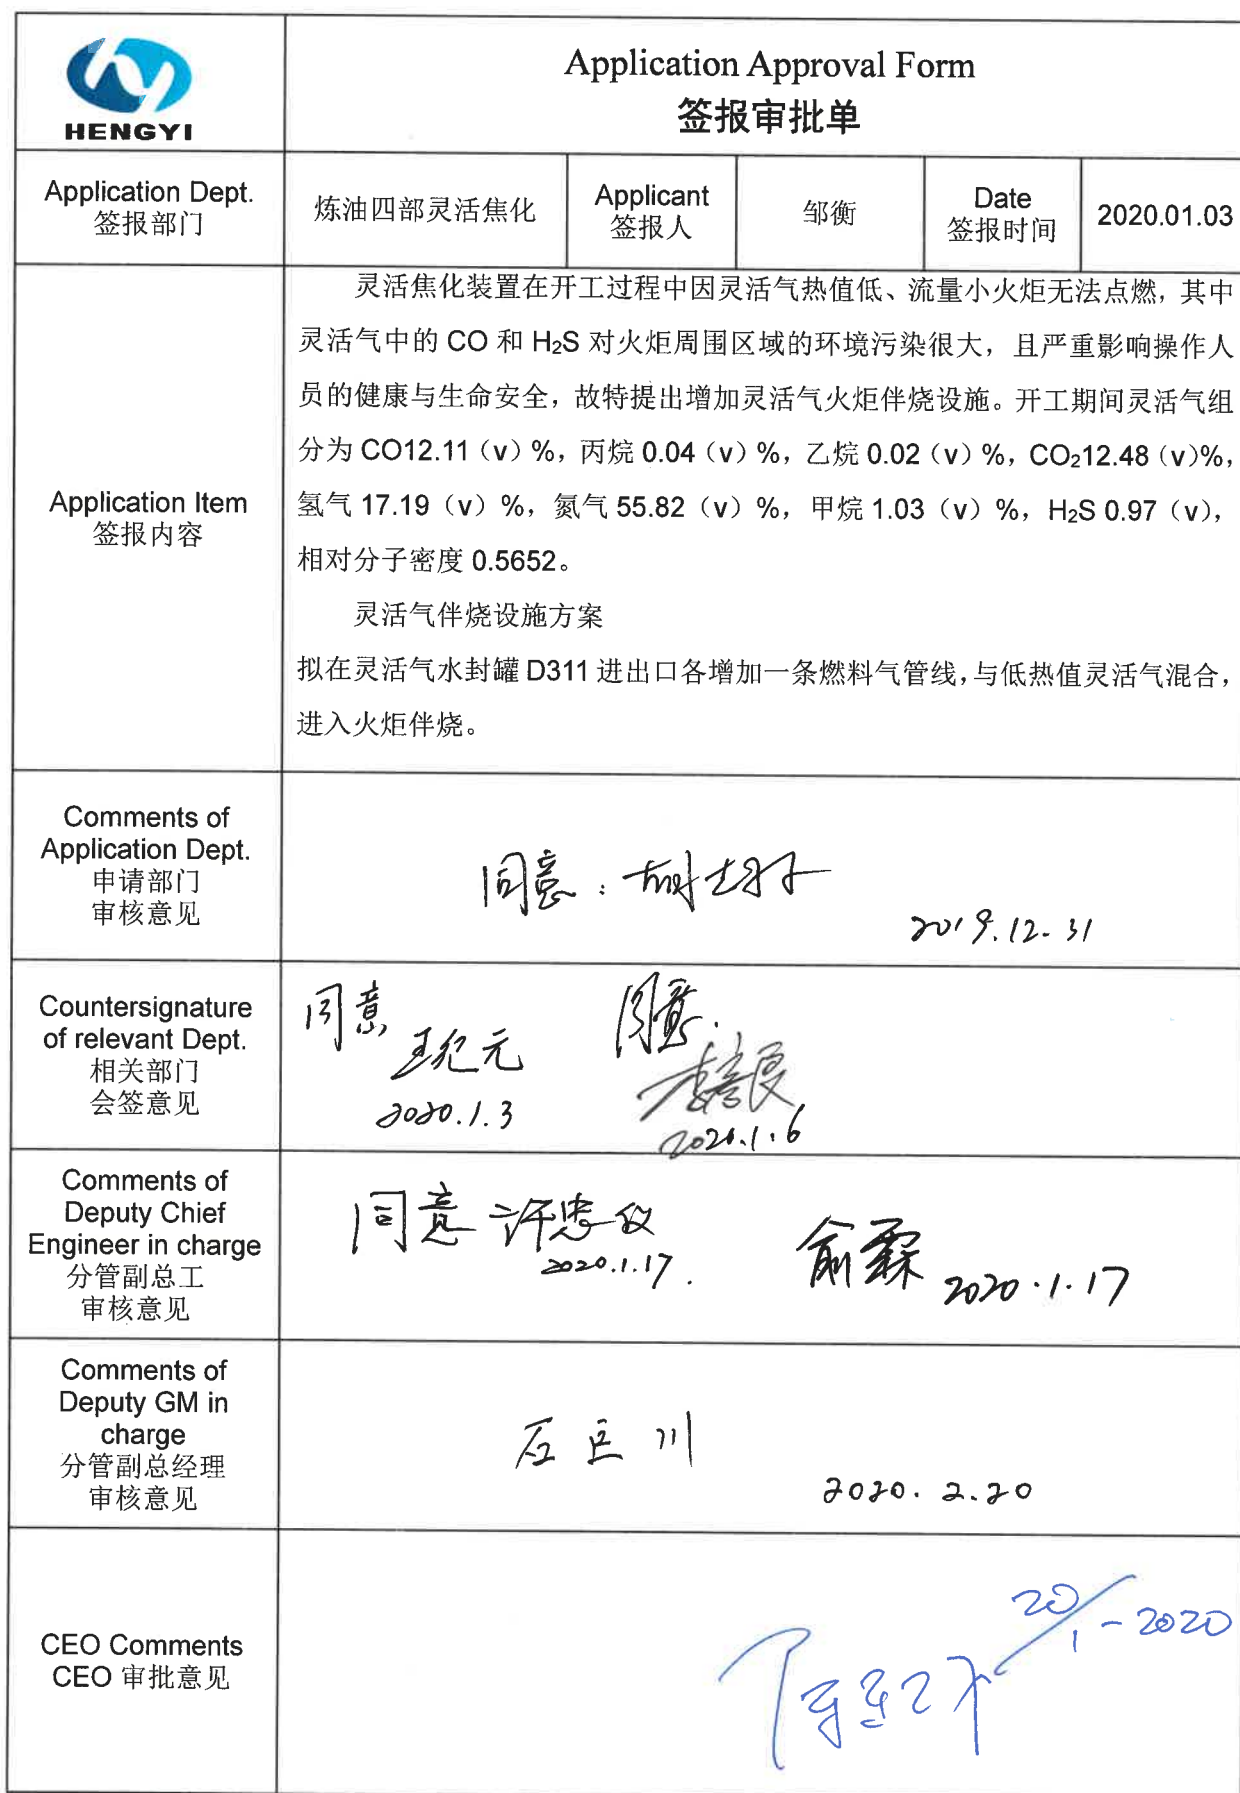 HENGYI
Application Approval Form
签报审批单
Application Dept.
签报部门
炼油四部灵活焦化
Applicant
签报人
邹衡
Date
签报时间
2020.01.03
Application Item
签报内容
灵活焦化装置在开工过程中因灵活气热值低、流量小火炬无法点燃，其中
灵活气中的 CO 和 H₂S 对火炬周围区域的环境污染很大，且严重影响操作人
员的健康与生命安全，故特提出增加灵活气火炬伴烧设施。开工期间灵活气组
分为 CO12.11（v）%，丙烷 0.04（v）%，乙烷 0.02（v）%，CO₂12.48（v)%，
氢气 17.19（v）%，氮气 55.82（v）%，甲烷 1.03（v）%，H₂S 0.97（v），
相对分子密度 0.5652。
灵活气伴烧设施方案
拟在灵活气水封罐 D311 进出口各增加一条燃料气管线，与低热值灵活气混合，
进入火炬伴烧。
Comments of
Application Dept.
申请部门
审核意见
同意：
2019.12.31
Countersignature
of relevant Dept.
相关部门
会签意见
同意
王纪元
2020.1.3
同意.
2020.1.6
Comments of
Deputy Chief
Engineer in charge
分管副总工
审核意见
同意 许忠仪
2020.1.17.
俞霖 2020.1.17
Comments of
Deputy GM in
charge
分管副总经理
审核意见
石巨川
2020.2.20
CEO Comments
CEO 审批意见
20/1-2020